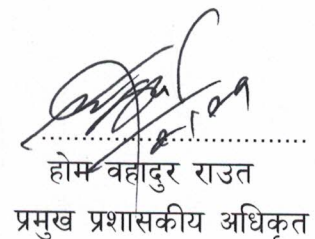 होम वहादुर राउत
प्रमुख प्रशासकीय अधिकृत